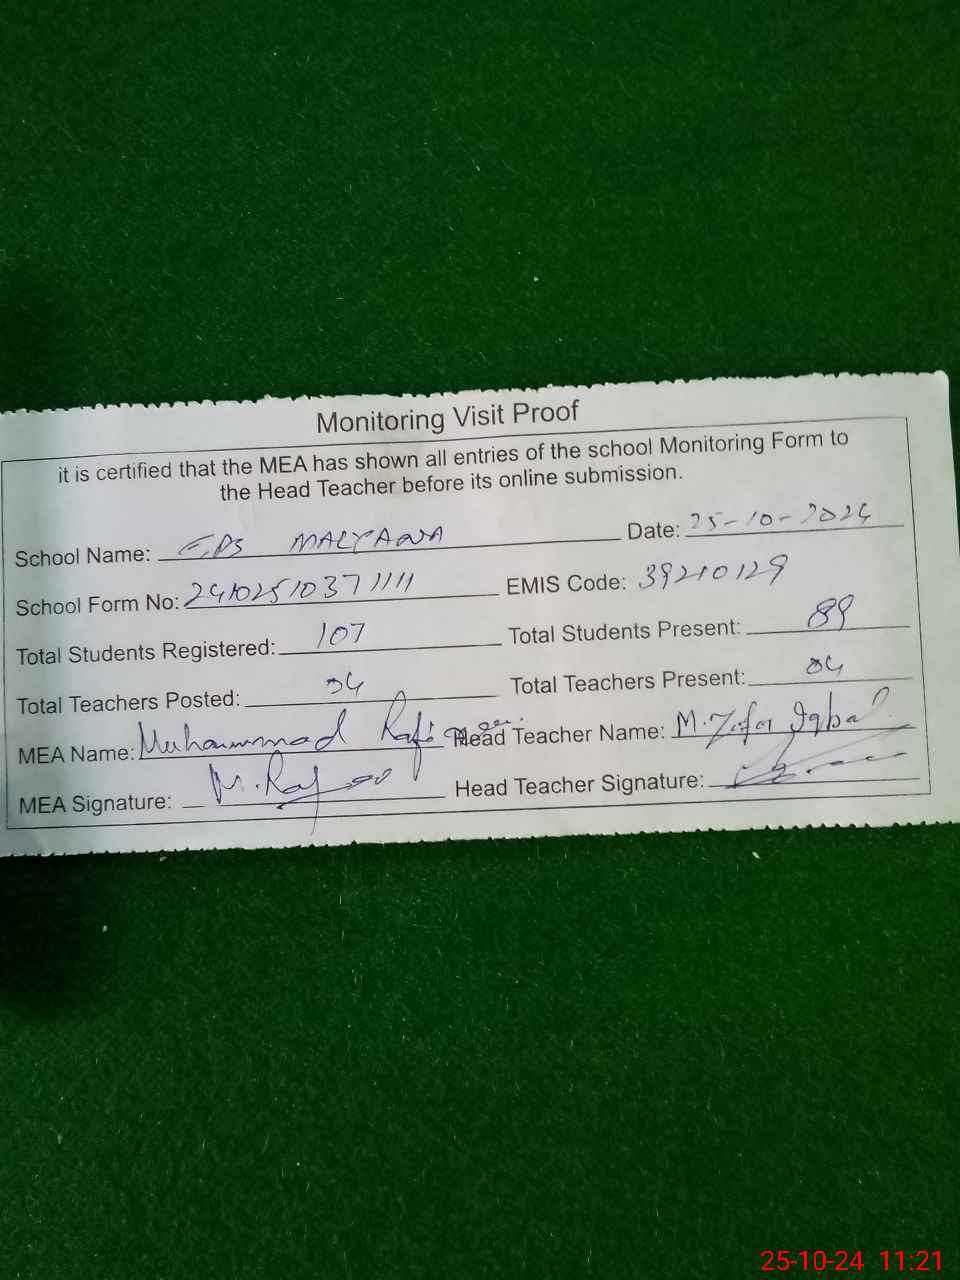 Monitoring Visit Proof
it is certified that the MEA has shown all entries of the school Monitoring Form to
the Head Teacher before its online submission.
School Name: GPS MALYANA Date: 25-10-2024
School Form No: 24102510371111 EMIS Code: 39210129
Total Students Registered: 107 Total Students Present: 89
Total Teachers Posted: 04 Total Teachers Present: 04
MEA Name: Muhammad Head Teacher Name: M. Zafar Iqbal
MEA Signature: Head Teacher Signature:
25-10-24 11:21